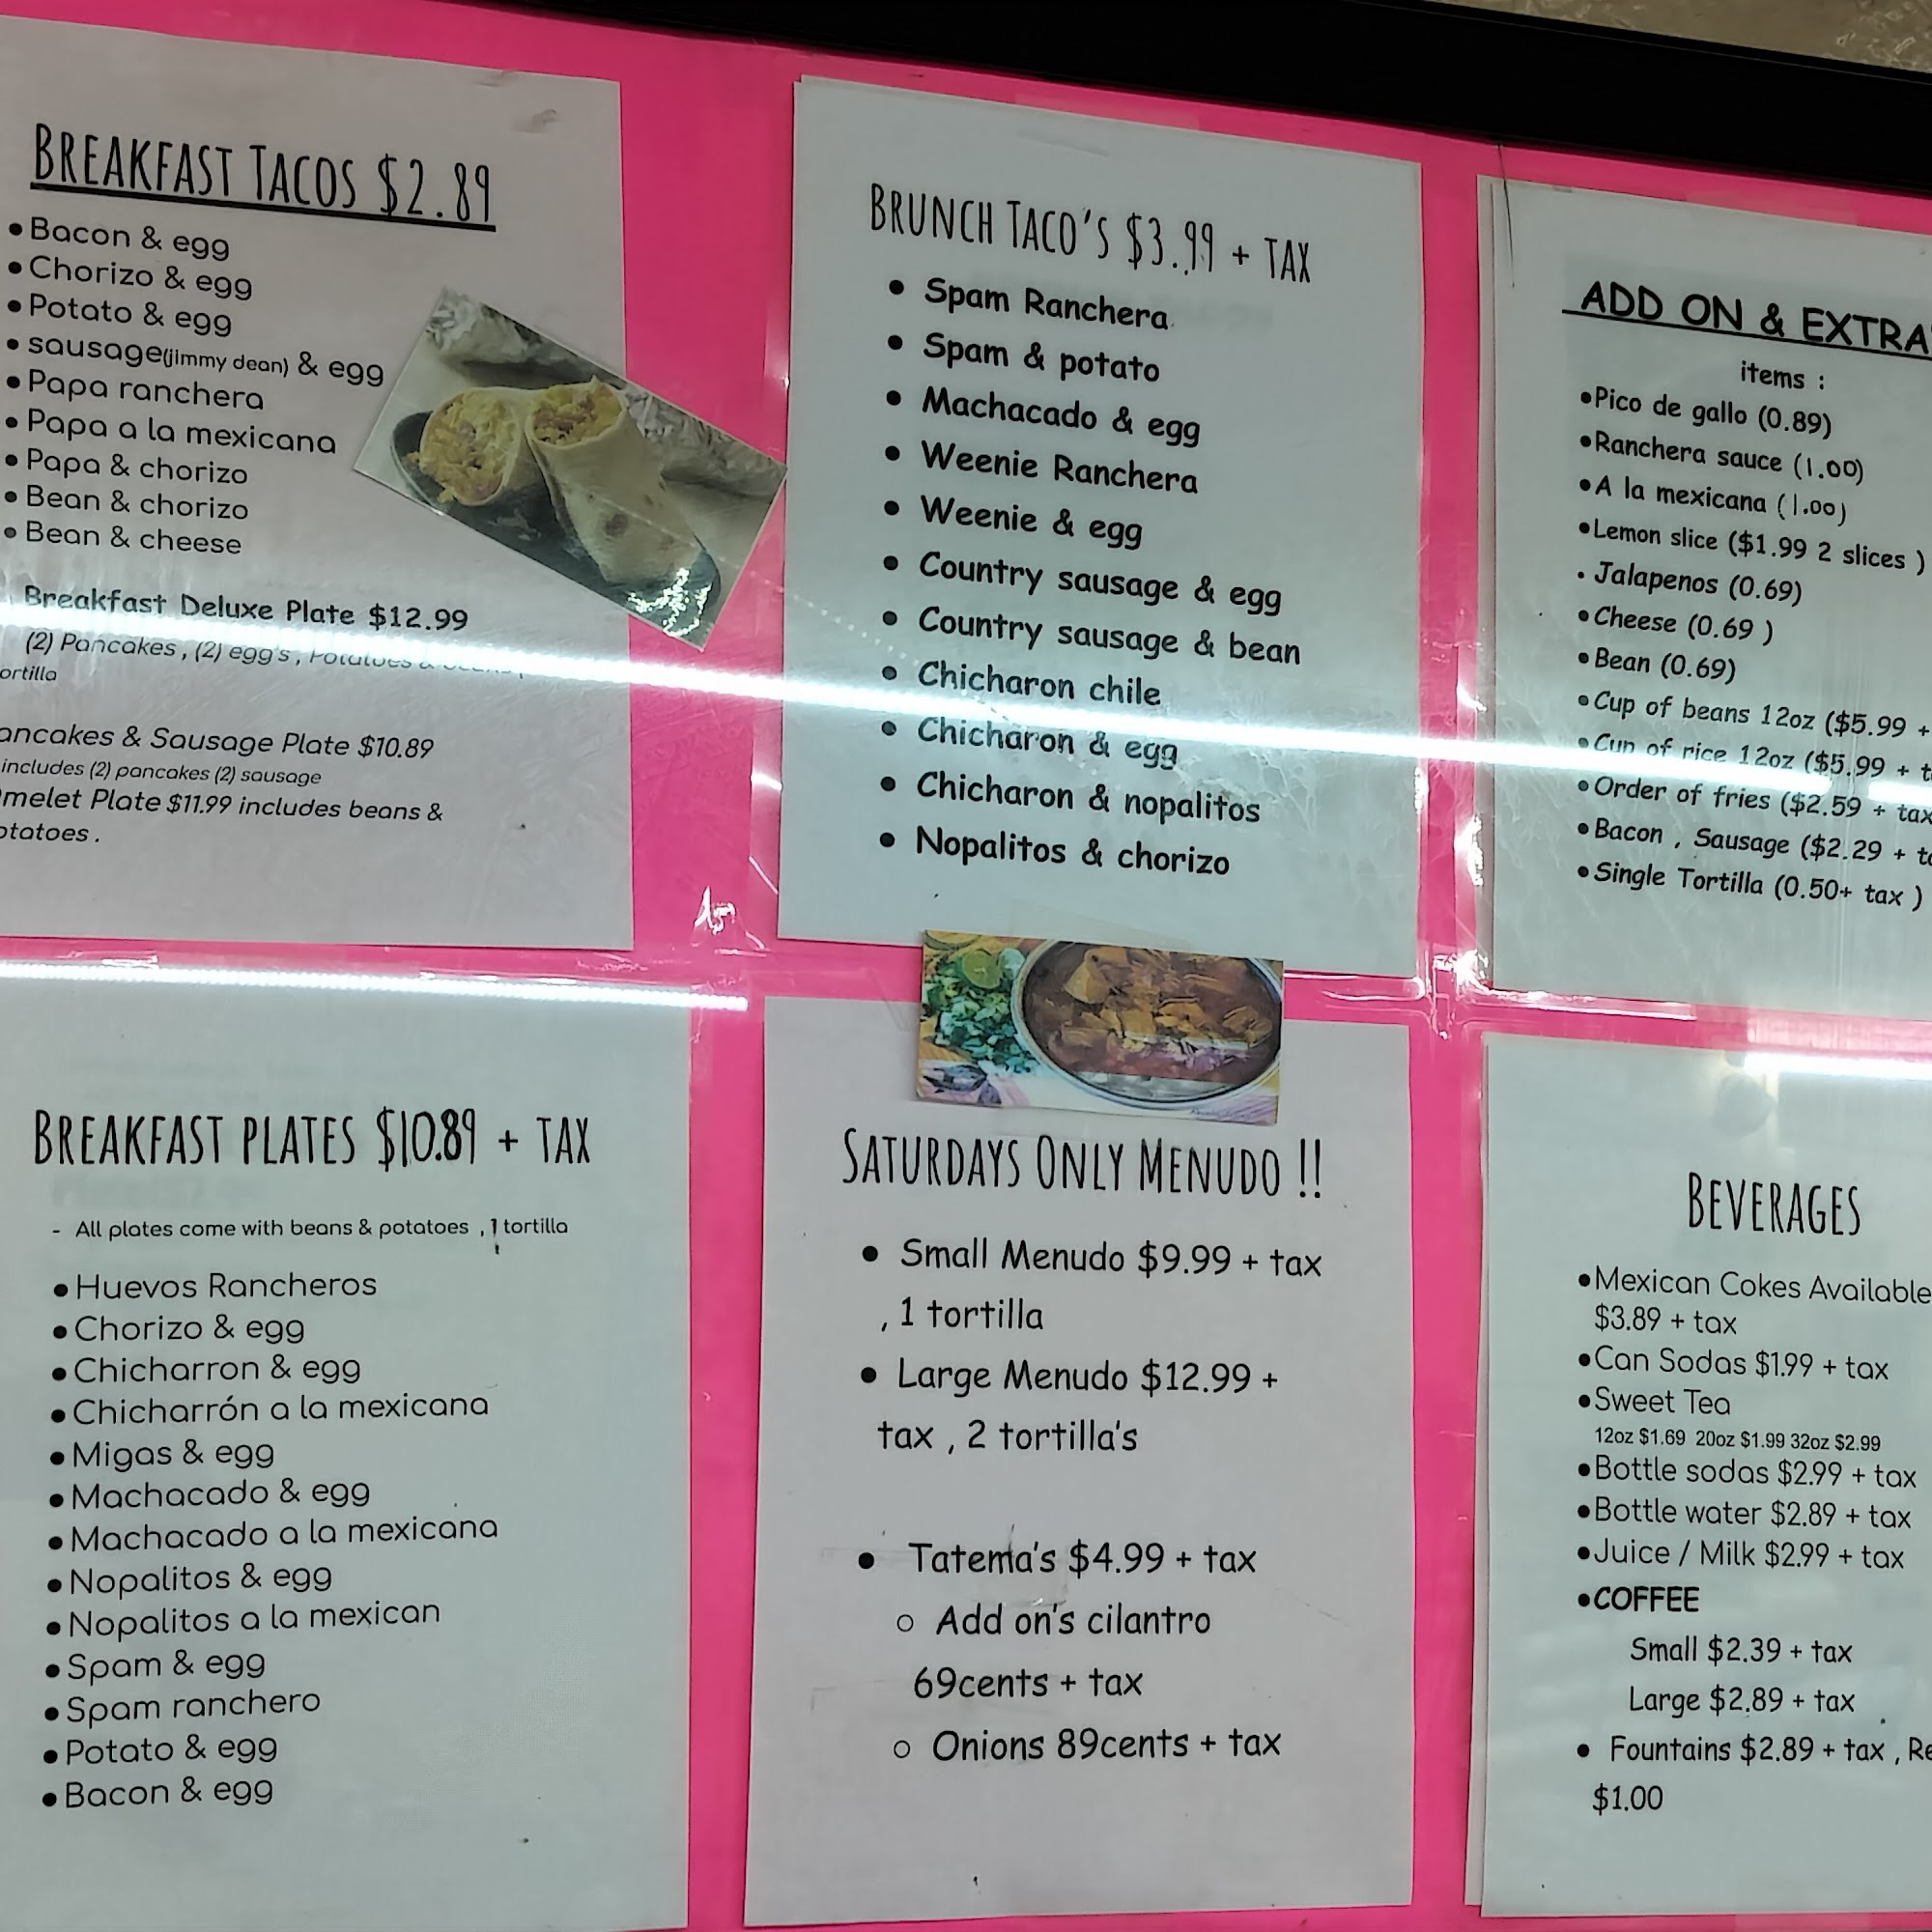 BREAKFAST TACOS $2.89
• Bacon & egg
• Chorizo & egg
• Potato & egg
• sausage(jimmy dean) & egg
• Papa ranchera
• Papa a la mexicana
• Papa & chorizo
• Bean & chorizo
• Bean & cheese
Breakfast Deluxe Plate $12.99
(2) Pancakes , (2) egg's , Potatoes &
ortilla
ancakes & Sausage Plate $10.89
includes (2) pancakes (2) sausage
melet Plate $11.99 includes beans &
otatoes .
BRUNCH TACO'S $3.99 + TAX
• Spam Ranchera
• Spam & potato
• Machacado & egg
• Weenie Ranchera
• Weenie & egg
• Country sausage & egg
• Country sausage & bean
• Chicharon chile
• Chicharon & egg
• Chicharon & nopalitos
• Nopalitos & chorizo
ADD ON & EXTRA
items :
• Pico de gallo (0.89)
• Ranchera sauce (1.00)
• A la mexicana (1.00)
• Lemon slice ($1.99 2 slices )
. Jalapenos (0.69)
• Cheese (0.69 )
• Bean (0.69)
• Cup of beans 12oz ($5.99 +
• Cup of rice 12oz ($5.99 + t
• Order of fries ($2.59 + tax
• Bacon , Sausage ($2.29 + t
• Single Tortilla (0.50+ tax )
BREAKFAST PLATES $10.89 + TAX
- All plates come with beans & potatoes , 1 tortilla
• Huevos Rancheros
• Chorizo & egg
• Chicharron & egg
• Chicharrón a la mexicana
• Migas & egg
• Machacado & egg
• Machacado a la mexicana
• Nopalitos & egg
• Nopalitos a la mexican
• Spam & egg
• Spam ranchero
• Potato & egg
• Bacon & egg
SATURDAYS ONLY MENUDO !!
• Small Menudo $9.99 + tax
, 1 tortilla
• Large Menudo $12.99 +
tax , 2 tortilla's
• Tatema's $4.99 + tax
○ Add on's cilantro
69cents + tax
○ Onions 89cents + tax
BEVERAGES
• Mexican Cokes Available
$3.89 + tax
• Can Sodas $1.99 + tax
• Sweet Tea
12oz $1.69 20oz $1.99 32oz $2.99
• Bottle sodas $2.99 + tax
• Bottle water $2.89 + tax
• Juice / Milk $2.99 + tax
• COFFEE
Small $2.39 + tax
Large $2.89 + tax
• Fountains $2.89 + tax , Re
$1.00